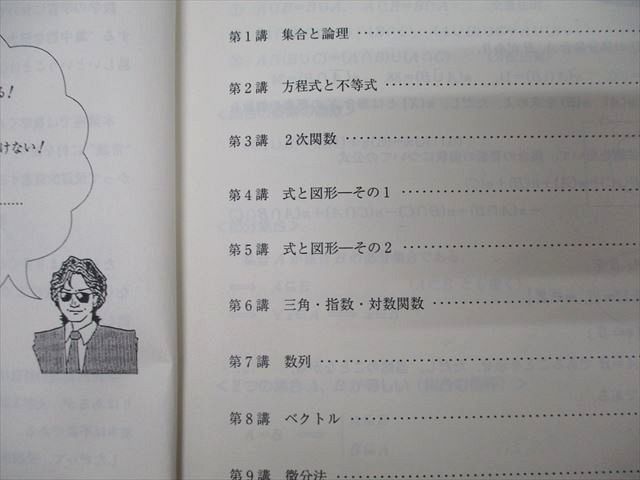 る!
けない!
第1講 集合と論理
第2講 方程式と不等式
第3講 2次関数
第4講 式と図形—その1
第5講 式と図形—その2
第6講 三角・指数・対数関数
第7講 数列
第8講 ベクトル
第9講 微分法